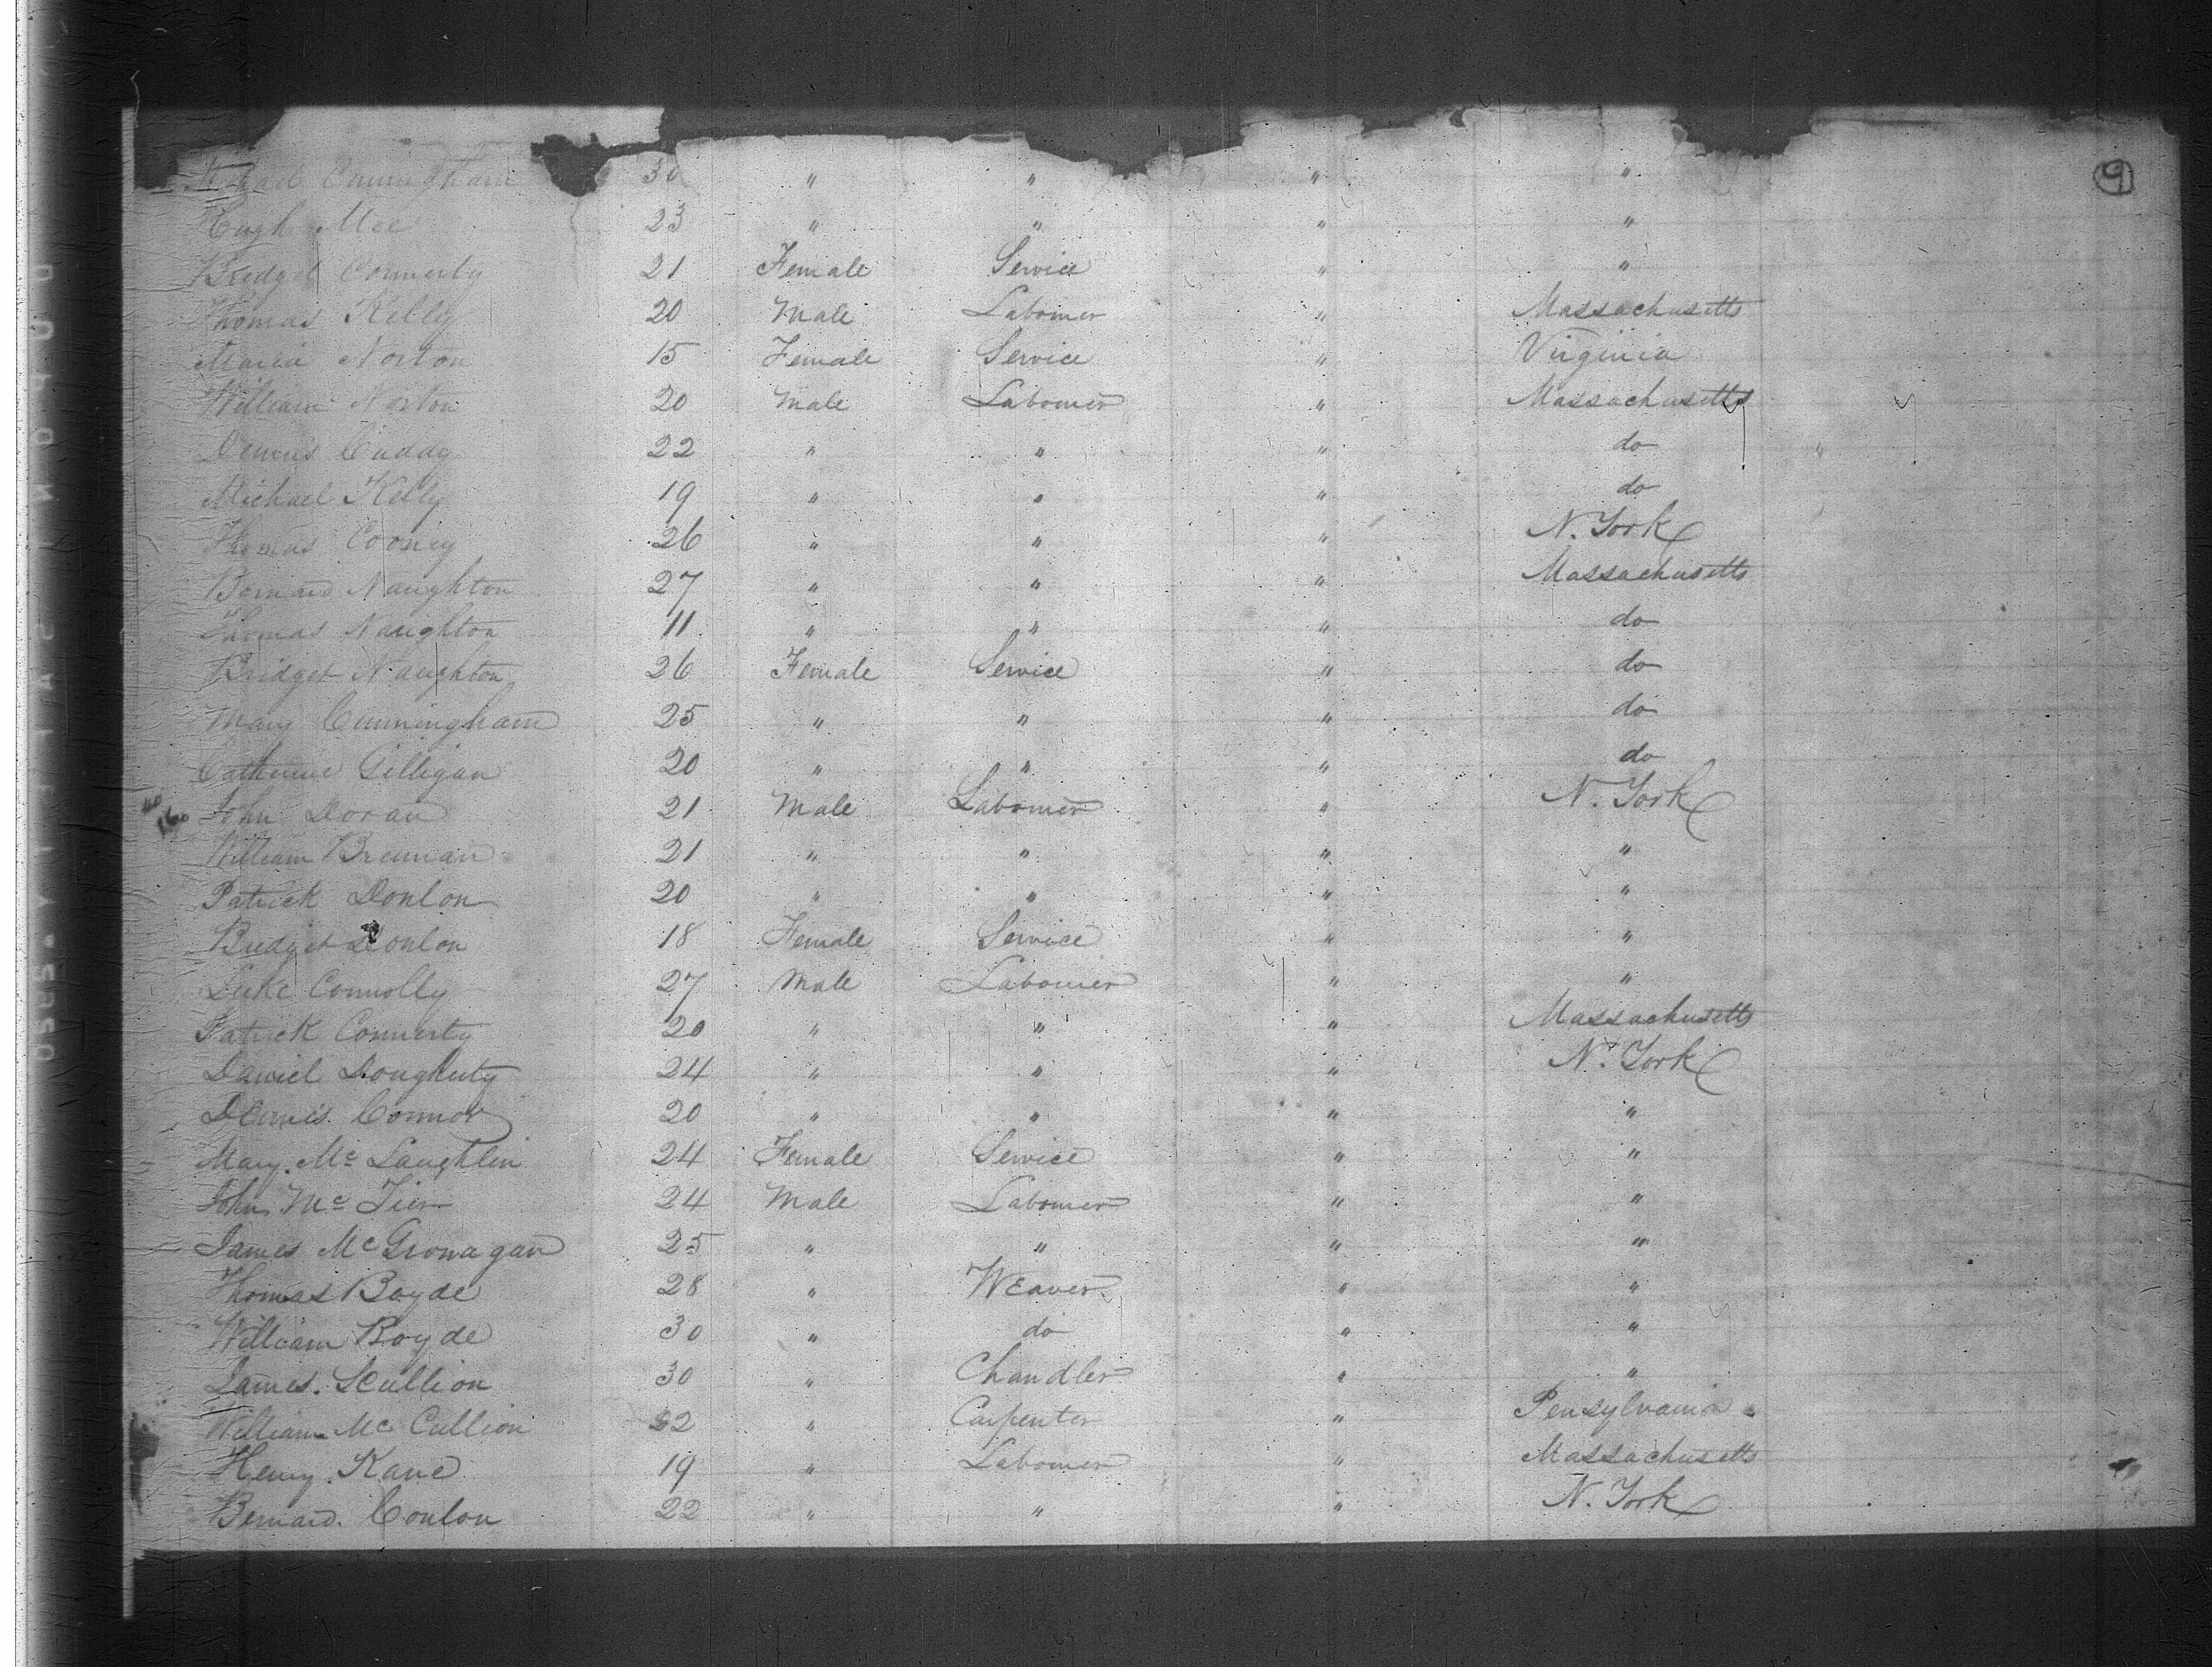 9
Michael Cunningham 30 " " " "
Hugh Mee 23 " " " "
Bridget Connerty 21 Female Service " "
Thomas Kelly 20 Male Labourer " Massachusetts
Maria Norton 15 Female Service " Virginia
William Norton 20 Male Labourer " Massachusetts
Dennis Cuddy 22 " " " do
Michael Kelly 19 " " " do
Thomas Cooney 26 " " " N. York
Bernard Naughton 27 " " " Massachusetts
Thomas Naughton 11 " " " do
Bridget Naughton 26 Female Service " do
Mary Cunningham 25 " " " do
Catherine Gilligan 20 " " " do
160 John Doran 21 Male Labourer " N. York
William Brennan 21 " " " "
Patrick Donlon 20 " " " "
Bridget Donlon 18 Female Service " "
Luke Connolly 27 Male Labourer " "
Patrick Connerty 20 " " " Massachusetts
Daniel Dougherty 24 " " " N. York
Dennis Connor 20 " " " "
Mary Mc Laughlin 24 Female Service " "
John Mc Tier 24 Male Labourer " "
James Mc Gronagan 25 " " " "
Thomas Boyde 28 " Weaver " "
William Boyde 30 " do " "
James Scullion 30 " Chandler " "
William Mc Cullion 22 " Carpenter " Pensylvania
Henry Kane 19 " Labourer " Massachusetts
Bernard Conlon 22 " " " N. York